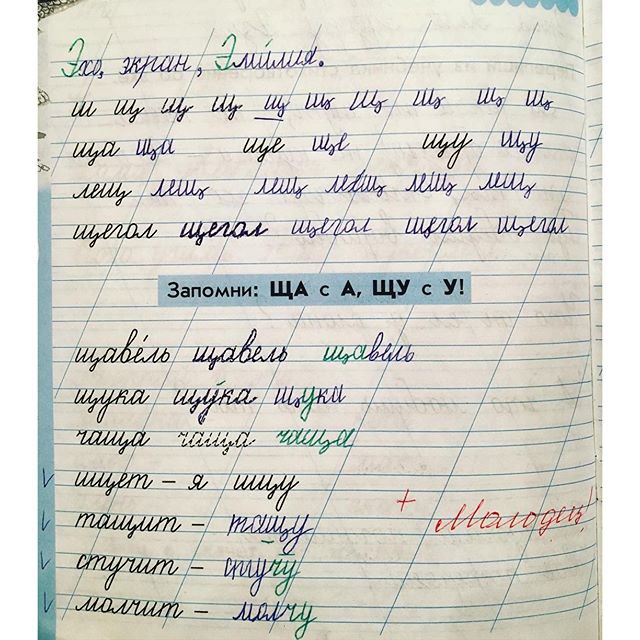 Эхо, экран, Эмилия.
ш щ щ щ щ щ щ щ щ щ
ща ща ще ще щу щу
лещ лещ лещ лещ лещ лещ
щегол щегол щегол щегол щегол
Запомни: ЩА с А, ЩУ с У!
щаве́ль щавель щавель
щука щука щука
чаща чаща чаща
ищет – я ищу
тащит – тащу
стучит – стучу
молчит – молчу
+ Молодец!